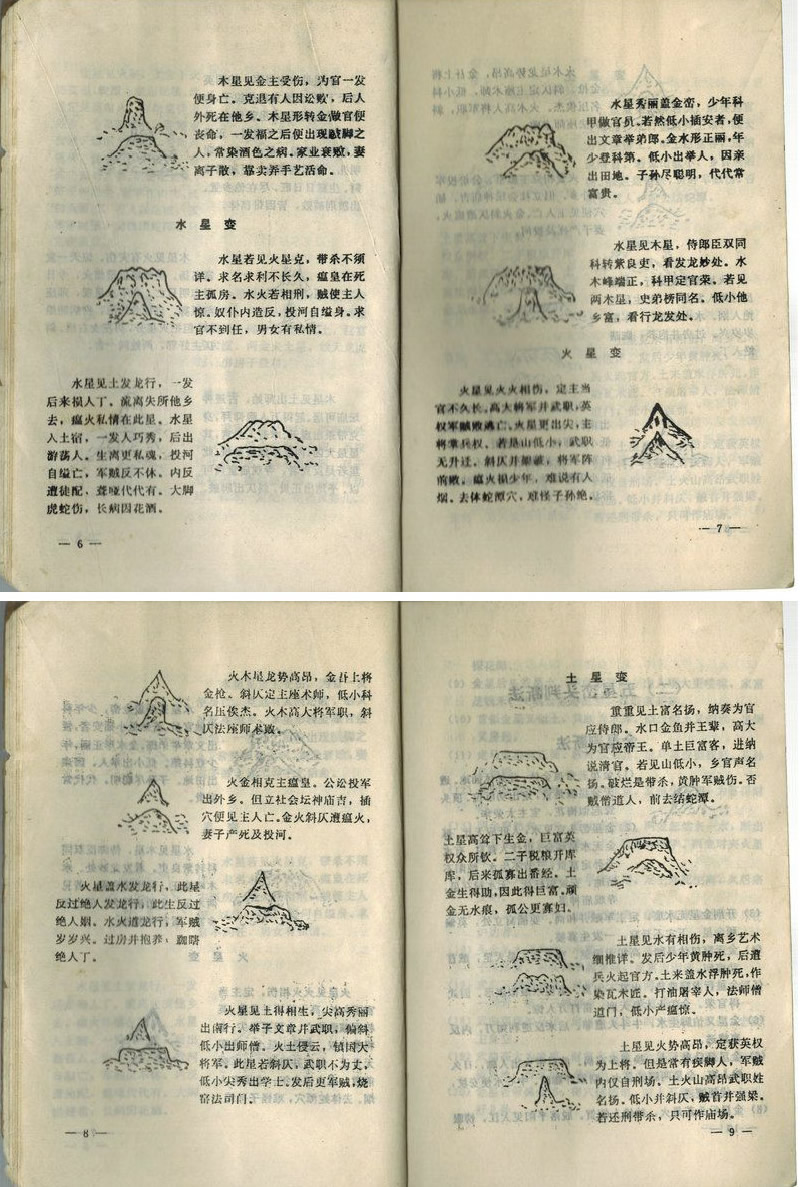 木星见金主受伤，为官一发
便身亡。克退有人因讼败，后人
外死在他乡。木星形转金做官便
丧命，一发福之后便出现贼脚之
人，常染酒色之病。家业衰败，妻
离子散，靠卖弄手艺活命。
水 星 变
水星若见火星克，带杀不须
详。求名求利不长久，瘟皇在死
主孤房。水火若相刑，贼使主人
惊。奴仆内造反，投河自缢身。求
官不到任，男女有私情。
水星见土发龙行，一发
后来损人丁。流离失所他乡
去，瘟火私情在此星。水星
入土宿，一发人巧秀，后出
游荡人。生离更私魂，投河
自缢亡，军贼反不休。内反
遭徒配，聋哑代代有。大脚
虎蛇伤，长病因花酒。
— 6 —
水星秀丽盖金峦，少年科
甲做官员。若然低小插安者，便
出文章举弟郎。金水形正丽，年
少登科第。低小出举人，因亲
出田地。子孙尽聪明，代代常
富贵。
水星见木星，侍郎臣双同
科转紫良吏，看发龙妙处。水
木峰端正，科甲定官荣。若见
两木星，史弟榜同名。低小他
乡富，看行龙发处。
火 星 变
火星见火火相伤，定主当
官不久长。高大将军并武职，英
权军贼败逃亡。火星更出尖，主
将掌兵权。若是山低小，武职
无升迁。斜仄并
前败。瘟火损少年，难说有人
烟。去体蛇潭穴，难怪子孙绝。
— 7 —
火木星龙势高昂，金吾上将
金抢。斜仄定主座术师，低小科
名压俟杰。火木高大将军职，斜
仄法座师术败。
火金相克主瘟皇。公讼投军
出外乡。但立社会坛神庙吉，插
穴便见主人亡。金火斜仄遭瘟火，
妻子产死及投河。
火星盖水发龙行，此星
反过绝人发龙行，此生反过
绝人烟。水火道龙行，军贼
岁岁兴。过房并抱养，
绝人丁。
火星见土得相生，尖高秀丽
出南行。举子文章并武职，偏斜
低小出师僧。火土侵云，镇国大
将军。此星若斜仄，武职不为丈。
低小尖秀出学士。发后更军贼，烧
窑法司门。
— 8 —
土 星 变
重重见土富名扬，纳奏为官
应侍郎。水口金鱼并王辈，高大
为官应帝王。单土巨富客，进纳
说清官。若见山低小，乡官声名
扬。破烂是带杀，黄肿军贼伤。否
贼僧道人，前去结蛇潭。
土星高耸下生金，巨富英
权众所钦。二子税粮开库
库，后来孤寡出香经。土
金生得助，因此得巨富，顽
金无水痕，孤公更寡妇。
土星见水有相伤，离乡艺术
细推详。发后少年黄肿死，后遭
兵火起官方。土来盖水浮肿死，作
染瓦木匠。打油屠宰人，法师僧
道门，低小产瘟惊。
土星见火势高昂，定获英权
为上将。但是常有疾脚人，军贼
内仅自刑场。土火山高昂武职姓
名扬。低小并斜仄，贼首并强梁。
若还刑带杀，只可作庙场。
— 9 —